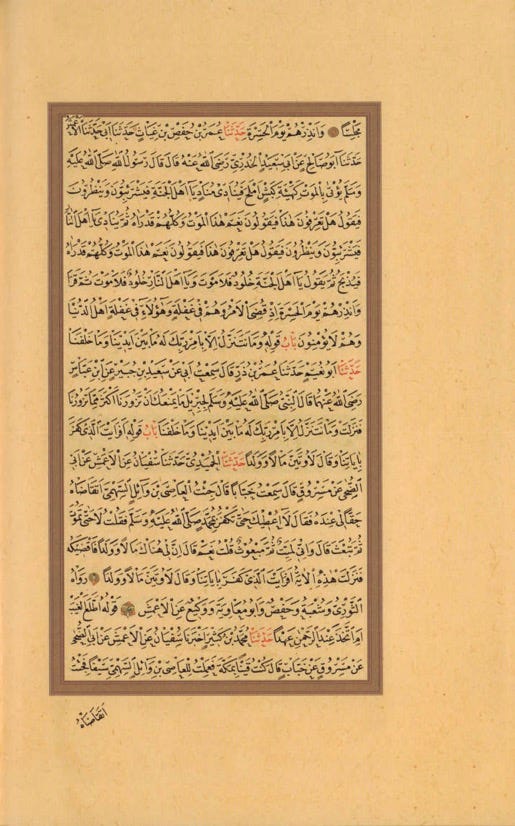 مجلسنا وانذرهم يوم الحسرة حدثنا عمر بن حفص بن غياث حدثنا ابي حدثنا الاعمش
حدثنا ابو صالح عن ابي سعيد الخدري رضي الله عنه قال قال رسول الله صلى الله عليه
وسلم يؤتى بالموت كهيئة كبش املح فينادي مناد يا اهل الجنة فيشرئبون وينظرون
فيقول هل تعرفون هذا فيقولون نعم هذا الموت وكلهم قد راه ثم ينادي يا اهل النار
فيشرئبون وينظرون فيقول هل تعرفون هذا فيقولون نعم هذا الموت وكلهم قد راه
فيذبح ثم يقول يا اهل الجنة خلود فلا موت ويا اهل النار خلود فلا موت ثم قرا
وانذرهم يوم الحسرة اذ قضي الامر وهم في غفلة وهؤلاء في غفلة اهل الدنيا
وهم لا يؤمنون باب قوله وما نتنزل الا بامر ربك له ما بين ايدينا وما خلفنا
حدثنا ابو نعيم حدثنا عمر بن ذر قال سمعت ابي عن سعيد بن جبير عن ابن عباس
رضي الله عنهما قال قال النبي صلى الله عليه وسلم لجبريل ما يمنعك ان تزورنا اكثر مما تزورنا
فنزلت وما نتنزل الا بامر ربك له ما بين ايدينا وما خلفنا باب قوله افرايت الذي كفر
باياتنا وقال لاوتين مالا وولدا حدثنا الحميدي حدثنا سفيان عن الاعمش عن ابي
الضحى عن مسروق قال سمعت خبابا قال جئت العاصي بن وائل السهمي اتقاضاه
حقا لي عنده فقال لا اعطيك حتى تكفر بمحمد صلى الله عليه وسلم فقلت لا حتى تموت
ثم تبعث قال واني لميت ثم مبعوث قلت نعم قال ان لي هناك مالا وولدا فاقضيكه
فنزلت هذه الاية افرايت الذي كفر باياتنا وقال لاوتين مالا وولدا رواه
الثوري وشعبة وحفص وابو معاوية ووكيع عن الاعمش قوله اطلع الغيب
ام اتخذ عند الرحمن عهدا حدثنا محمد بن كثير اخبرنا سفيان عن الاعمش عن ابي الضحى
عن مسروق عن خباب قال كنت قينا بمكة فعملت للعاصي بن وائل السهمي سيفا فجئت
اتقاضاه